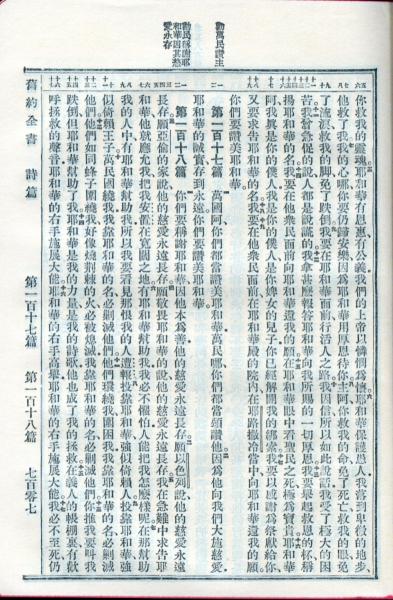 勸萬民讚主
勸民稱謝耶
和華因其慈
愛永存
你救我的靈魂耶和華有恩惠有公義我們的上帝以憐憫爲懷耶和華保護愚人我落到卑微的地步
他救了我我的心哪你要仍歸安樂因爲耶和華用厚恩待你主阿你救我的命免了死亡救我的眼免
了流淚救我的脚免了跌倒我要在耶和華面前行活人之路我因信所以如此說話我受了極大的困
苦我曾急促的說人都是說謊的我拿甚麽報答耶和華向我所賜的一切厚恩我要舉起救恩的杯稱
揚耶和華的名我要在他衆民面前向耶和華還我的願在耶和華眼中看聖民之死極爲寶貴耶和華
阿我眞是你的僕人我是你的僕人是你婢女的兒子你已經解開我的綁索我要以感謝爲祭獻給你
又要求告耶和華的名我要在他衆民面前在耶和華殿的院內在耶路撒冷當中向耶和華還我的願
你們要讚美耶和華
第一百十七篇 萬國阿你們都當讚美耶和華萬民哪你們都當頌讚他因爲他向我們大施慈愛
耶和華的誠實存到永遠你們要讚美耶和華
第一百十八篇 你們要稱謝耶和華因他本爲善他的慈愛永遠長存願以色列說他的慈愛永遠
長存願亞倫的家說他的慈愛永遠長存願敬畏耶和華的說他的慈愛永遠長存我在急難中求告耶
和華他就應允我把我安置在寬闊之地有耶和華幫助我我必不懼怕人能把我怎麽樣呢在那幫助
我的人中有耶和華幫助我所以我要看見那恨我的人遭報投靠耶和華強似倚賴人投靠耶和華強
似倚賴王子萬民圍繞我我靠耶和華的名必剿滅他們他們環繞我圍困我我靠耶和華的名必剿滅
他們他們如同蜂子圍繞我好像燒荆棘的火必被熄滅我靠耶和華的名必剿滅他們你推我要叫我
跌倒但耶和華幫助了我耶和華是我的力量是我的詩歌他也成了我的拯救在義人的帳棚裏有歡
呼拯救的聲音耶和華的右手施展大能耶和華的右手高舉耶和華的右手施展大能我必不至死仍
舊約全書 詩篇 第一百十七篇 第一百十八篇 七百零七